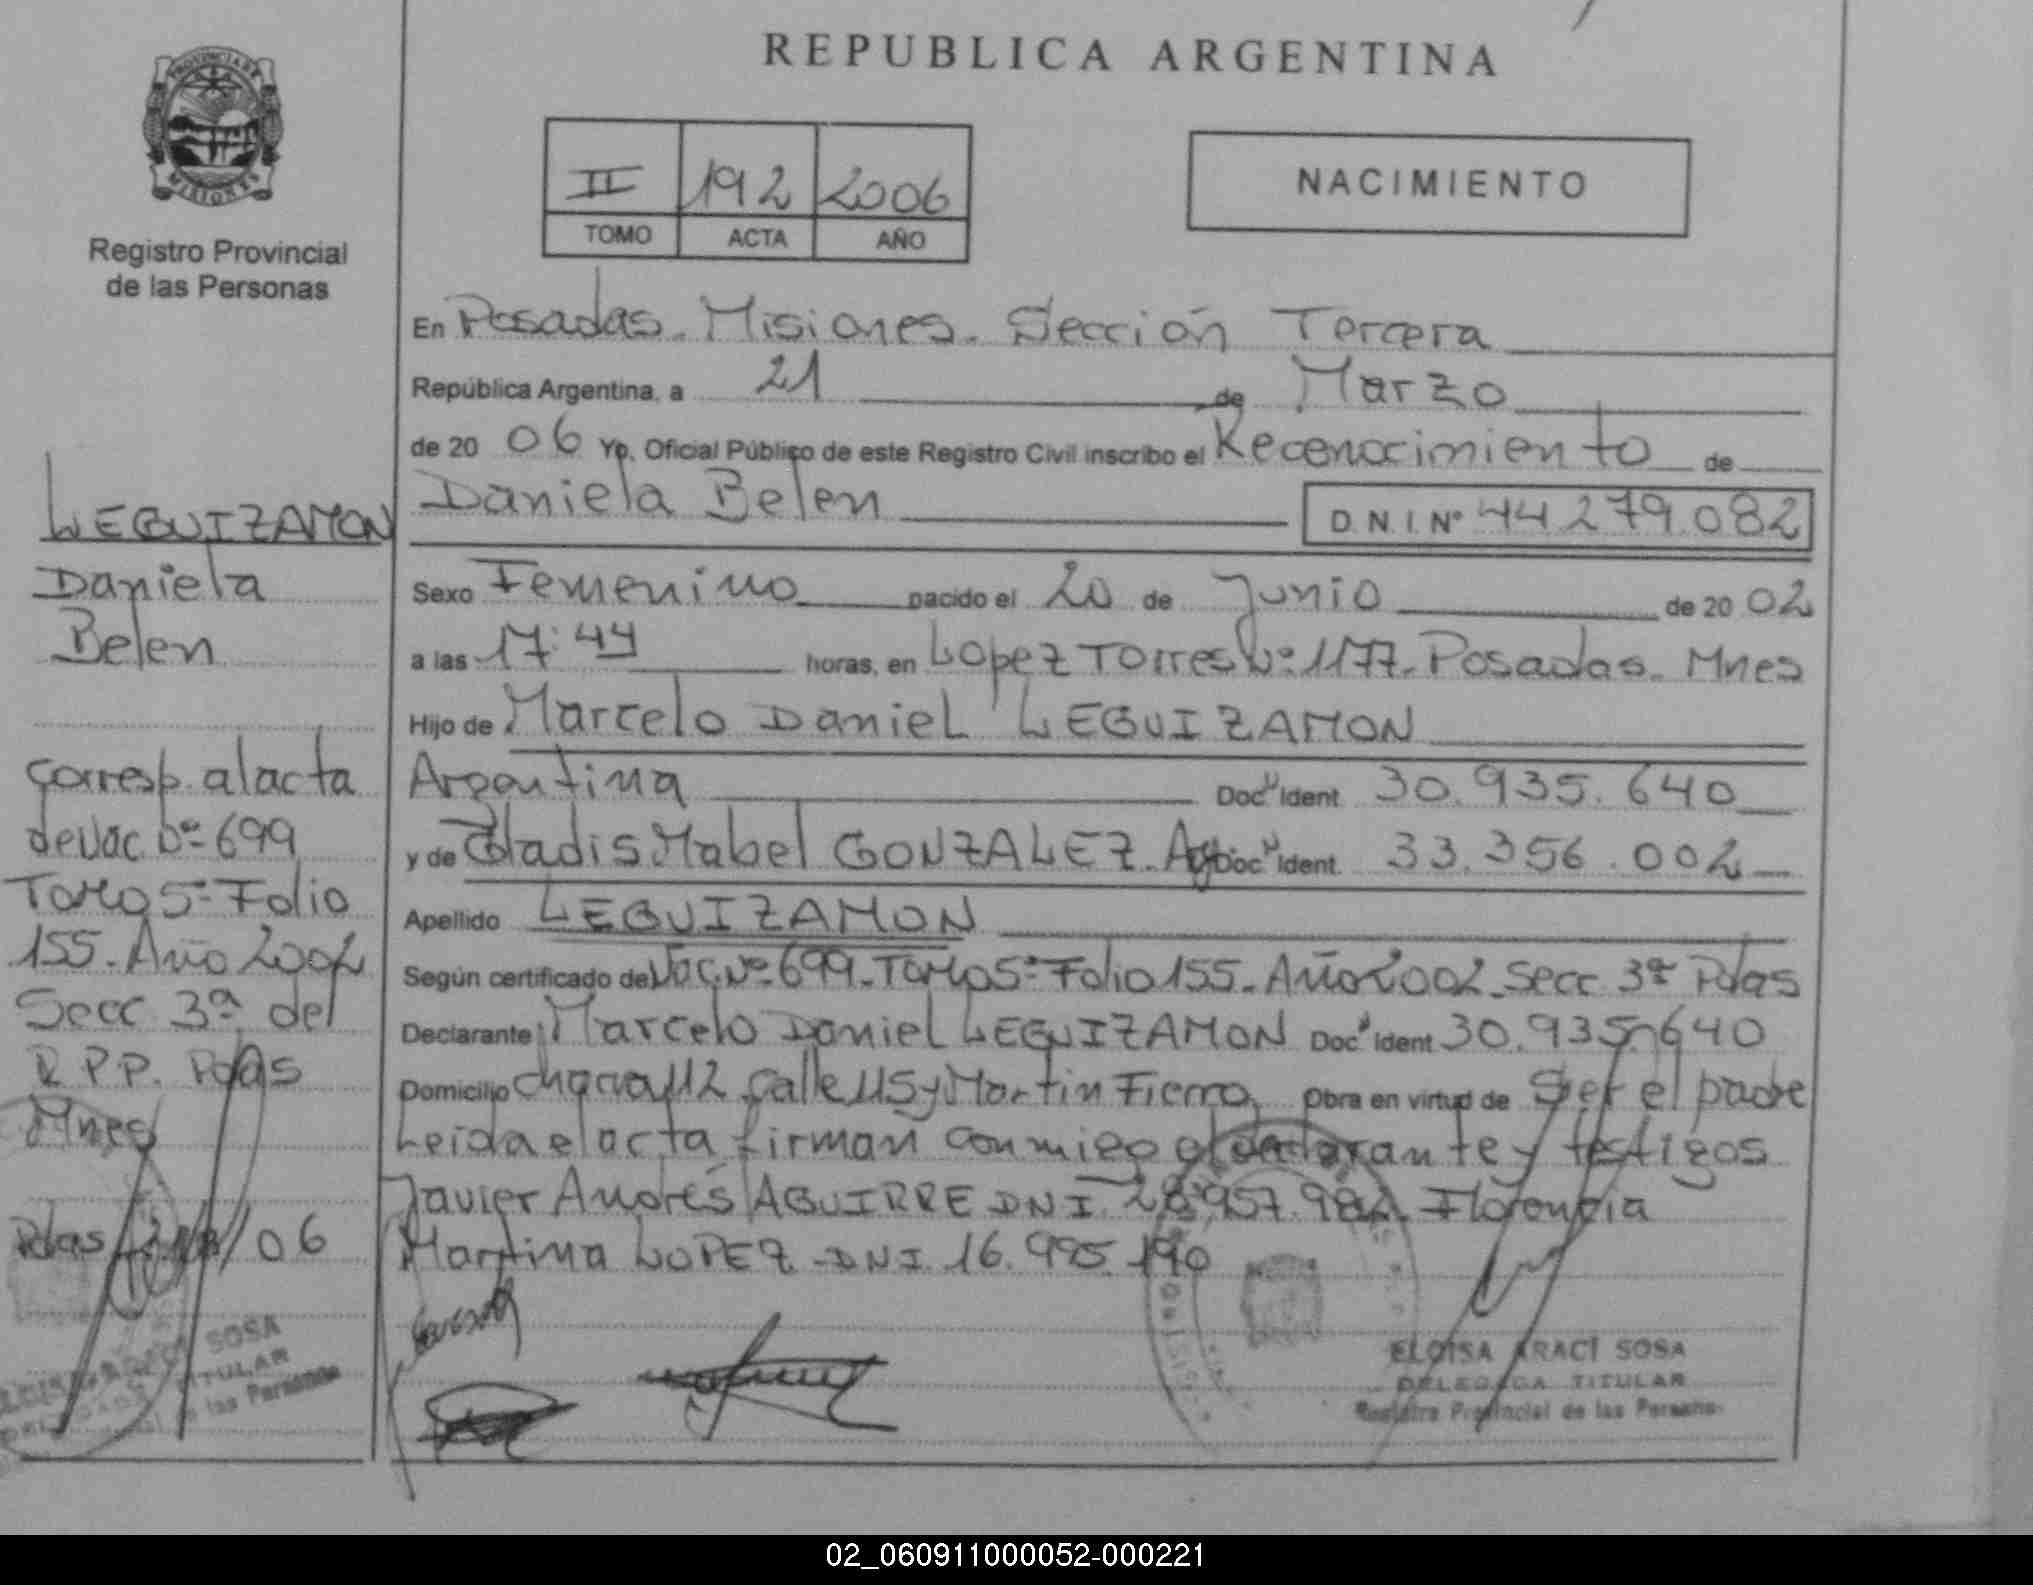 REPUBLICA ARGENTINA
PROVINCIA DE
MISIONES
Registro Provincial
de las Personas
II 192 2006
TOMO ACTA AÑO
NACIMIENTO
En Posadas. Misiones. Sección Tercera
República Argentina, a 21 de Marzo
de 20 06 Yo, Oficial Público de este Registro Civil inscribo el Reconocimiento de
Daniela Belen D.N.I. Nº 44 279.082
Sexo Femenino nacido el 20 de Junio de 20 02
a las 17:44 horas, en Lopez Torres Nº 1177. Posadas. Mnes
Hijo de Marcelo Daniel LEGUIZAMON
Argentina Doc. Ident. 30.935.640
y de Gladis Mabel GONZALEZ. Arg Doc. Ident. 33.356.002
Apellido LEGUIZAMON
Según certificado de Nac. Nº 699. Tomo 5º Folio 155. Año 2002. Secc 3ª Pdas
Declarante Marcelo Daniel LEGUIZAMON Doc. Ident 30.935.640
Domicilio chacra 112 calle 115 y Martin Fierro. Obra en virtud de Ser el padre
Leida el acta firman conmigo el declarante y testigos
Javier Andrés AGUIRRE DNI 28.957.982. Florencia
Martina LOPEZ DNI. 16.995.190
LEGUIZAMON
Daniela
Belen
Corresp. al acta
de Nac. Nº 699
Tomo 5º Folio
155. Año 2002
Secc 3ª del
R.P.P. Pdas
Mnes
Pdas 06
SOSA
TITULAR
las Personas
ELOISA ARACI SOSA
DELEGADA TITULAR
Registro Provincial de las Persona
02_060911000052-000221